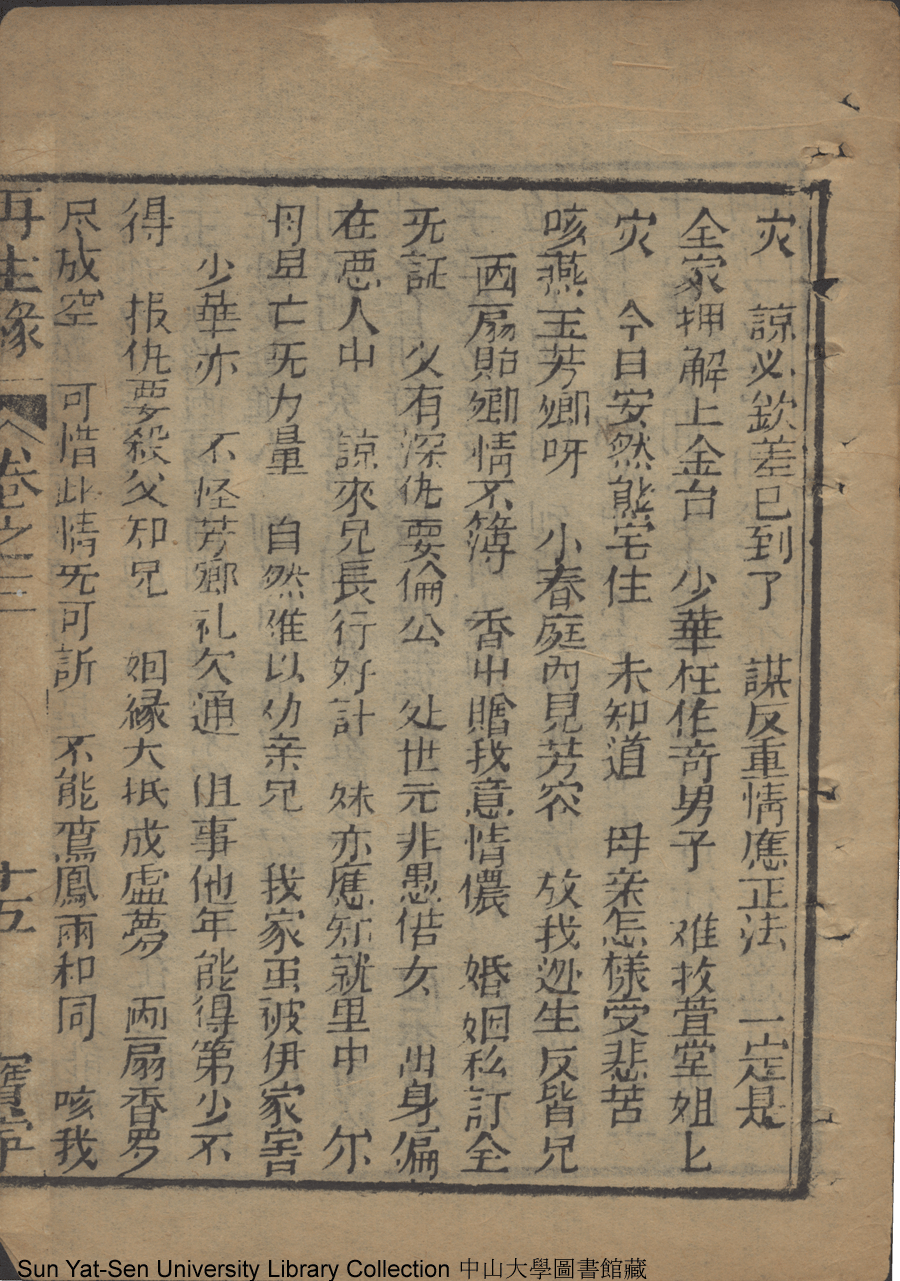 灾　諒必欽差已到了　謀反重情應正法　一定是
全家押解上金台　少華枉作奇男子　难救萱堂姐匕
灾　今日安然熊宅住　未知道　母亲怎樣受悲苦
咳燕玉芳卿呀　小春庭內見芳容　放我迯生反皆兄
两扇貽卿情不簿　香巾贈我意情儂　婚姻私訂全
旡証　父有深仇要倫公　处世元非愚偌女　出身偏
在惡人中　諒來兄長行奸計　妹亦應知就里中　尔
母且亡旡力量　自然难以劝亲兄　我家虽被伊家害
少華亦　不怪芳鄉礼欠通　但事他年能得第少不
得　报仇要殺父知兄　姻緣大抵成虛夢　两扇香罗
尽成空　可惜此情旡可訴　不能鸞鳳兩和同　咳我
再生緣　卷之三　十五　寶寧
Sun Yat-Sen University Library Collection 中山大學圖書館藏